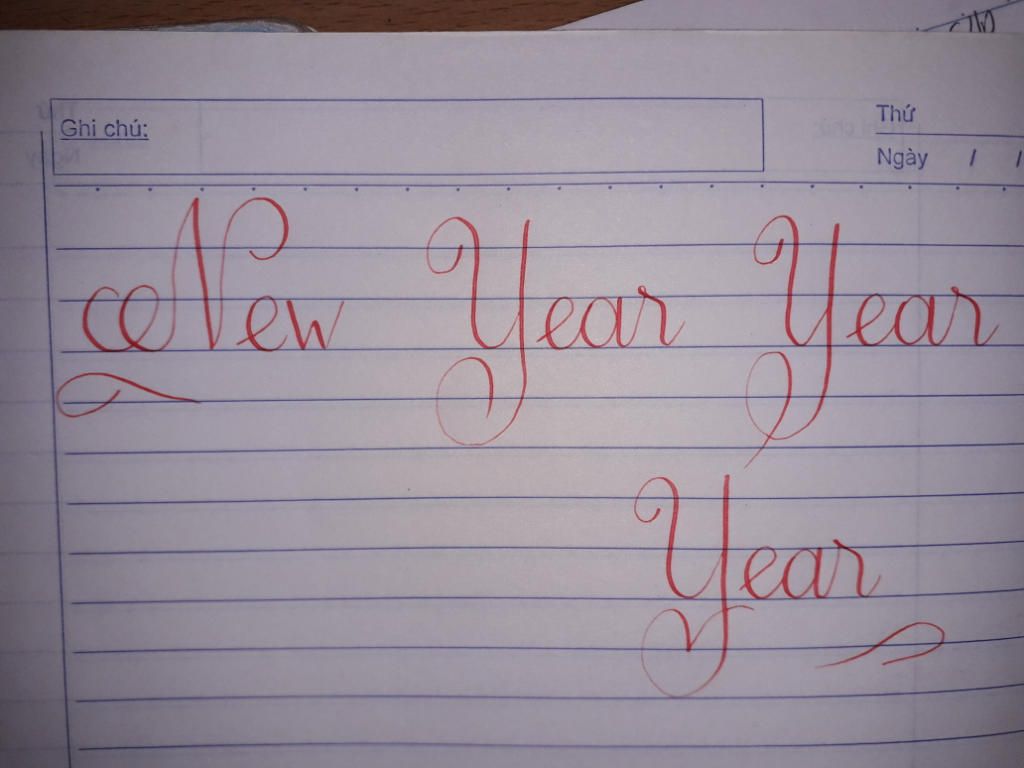 Ghi chú:
Thứ
Ngày / /
New Year Year
Year